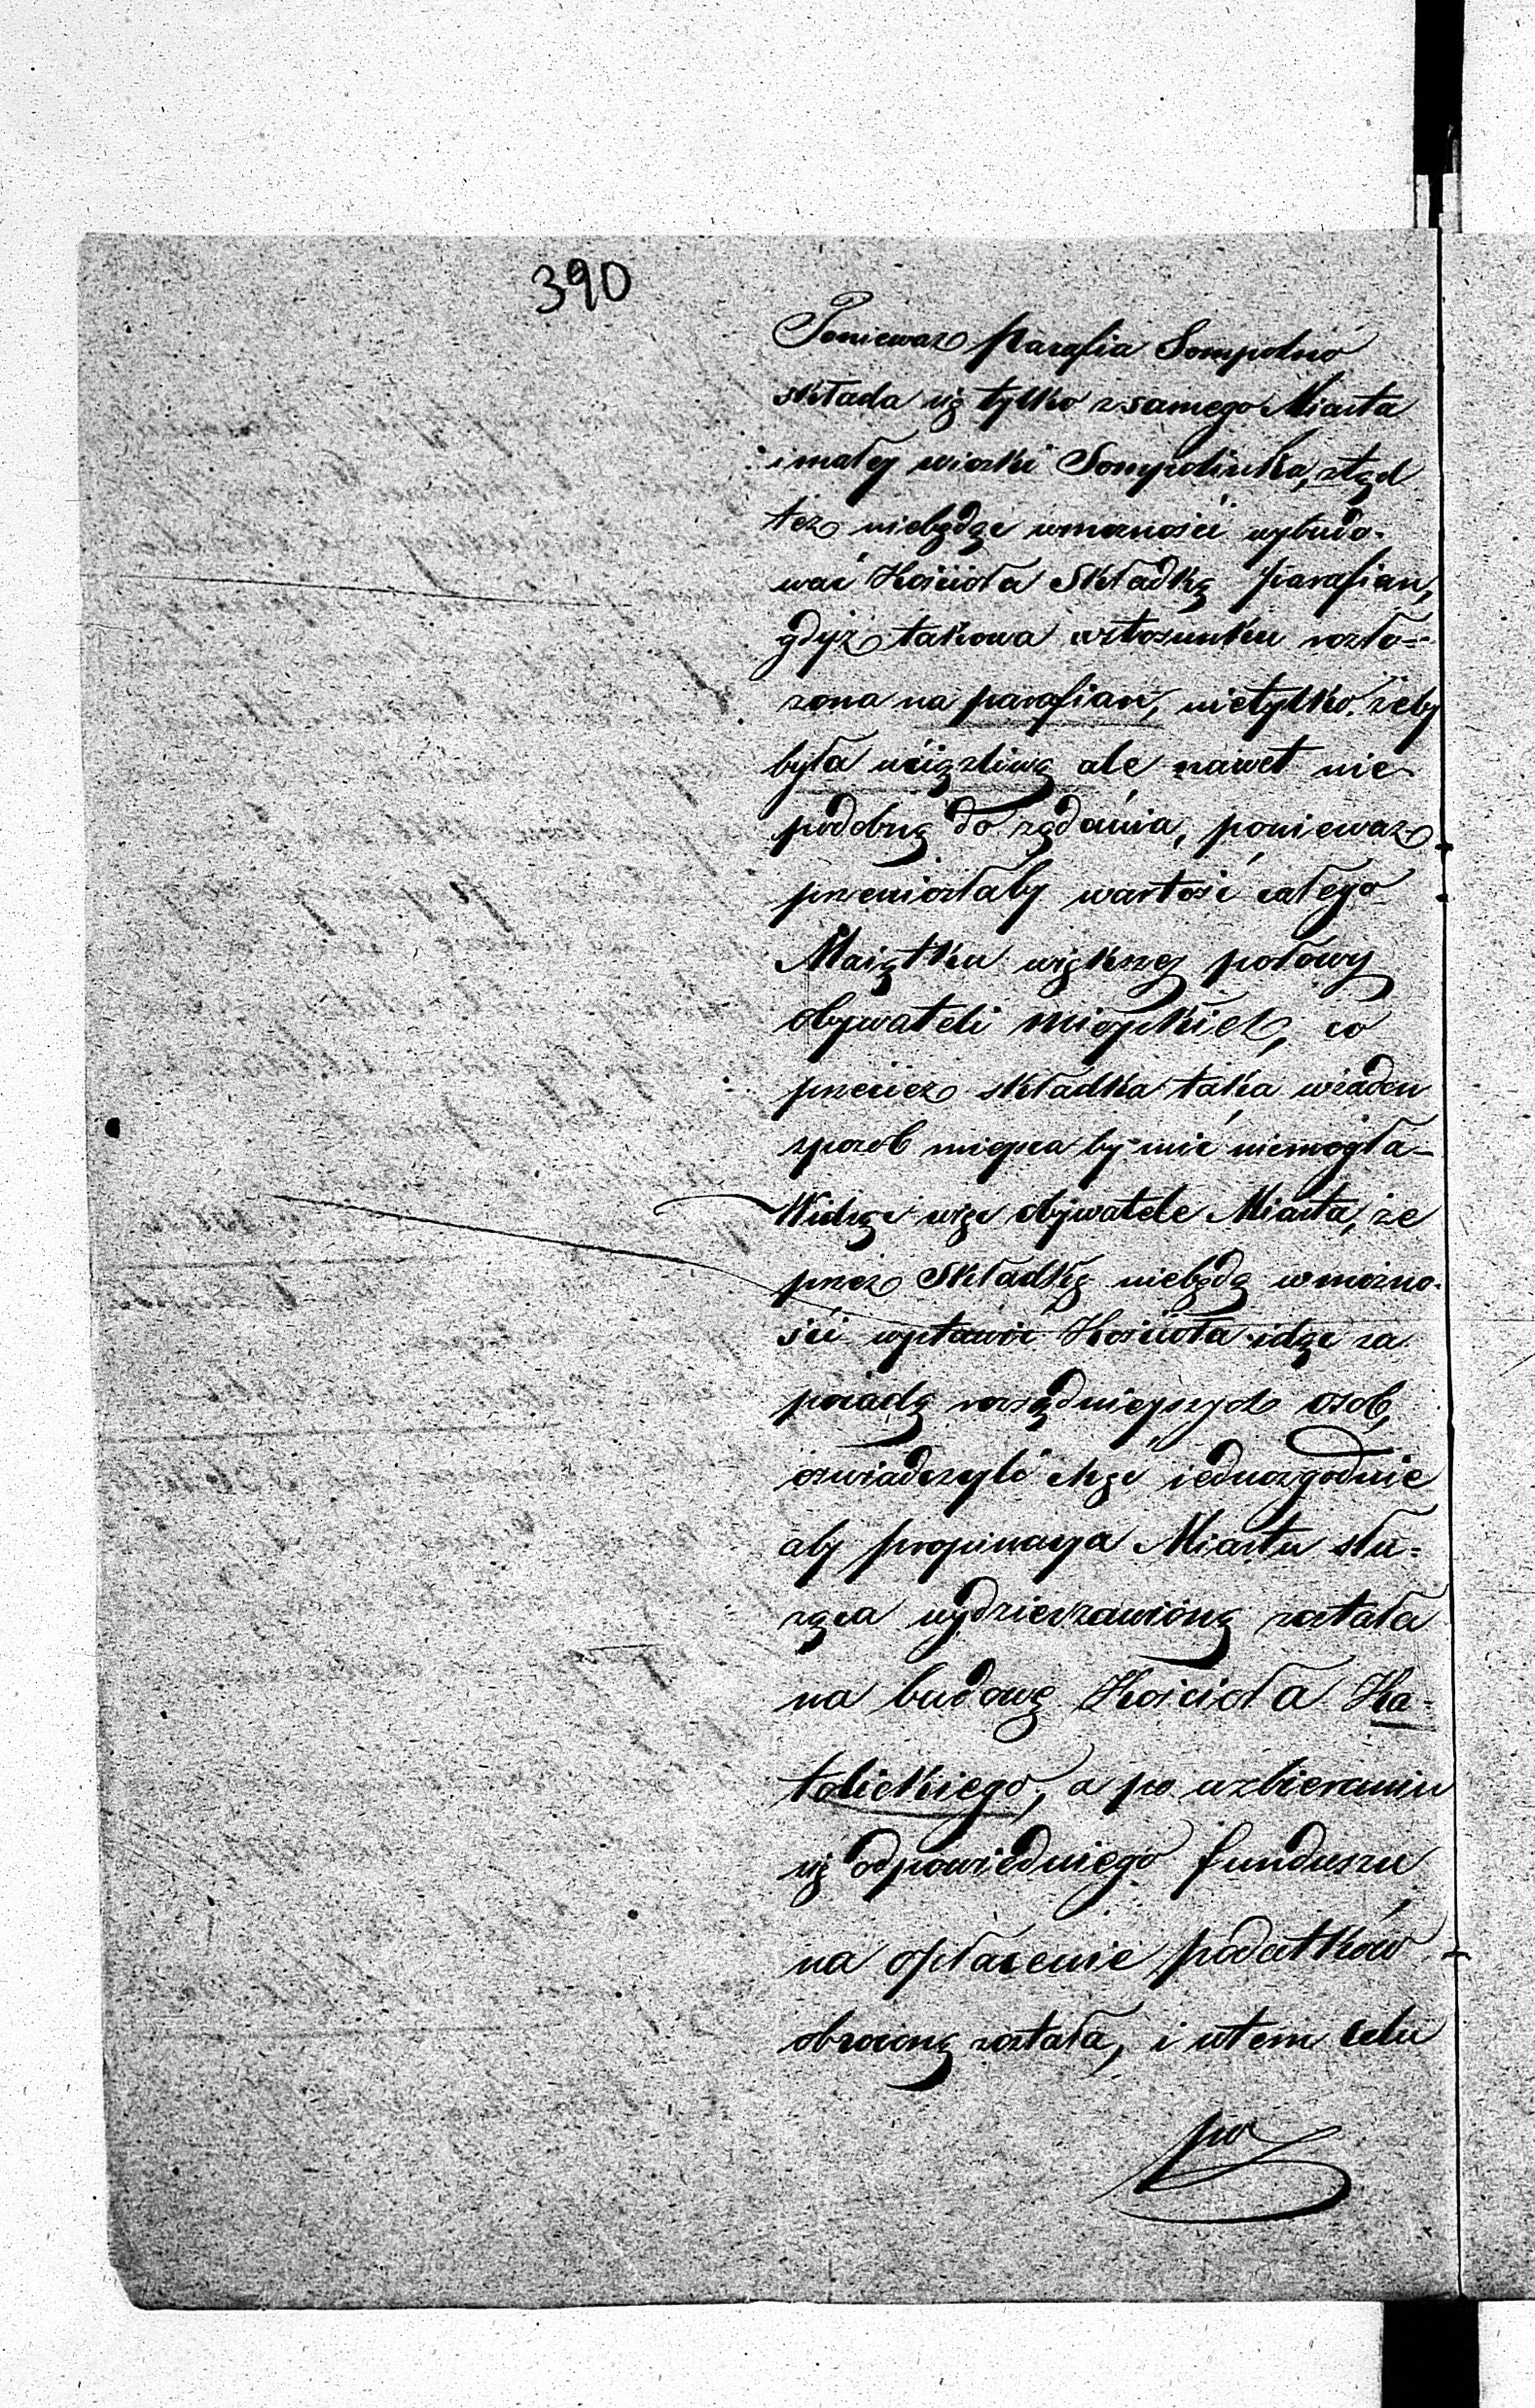 390
Ponieważ Parafia Sompolno
składa się tylko z samego Miasta
i małey wioski Sompolinka, ztąd
też niebędąc wmożności wybudo-
wać Kościoła Składką parafian,
gdyż takowa wstosunku rozło-
żona na parafian, nietylko żeby
była uciążliwą ale nawet nie
podobną do żądania, ponieważ
przeniosłaby wartość całego
Maiątku większey połowy
obywateli mieyskich, co
przecież składka taka wżaden
sposób mieysca by mić niemogła
Widząc więc obywatele Miasta, że
przez Składkę niebędą wmożno-
ści wystawić Kościoła idąc za
poradą rozsądnieyszych osób,
oświadczyli chęć iednozgodnie
aby propinacya Miastu słu-
żąca wydzierżawioną została
na budowę Kościoła Ka-
tolickiego, a po uzbieraniu
się odpowiedniego funduszu
na opłacenie podatków
obroconą została, i wtem celu
po